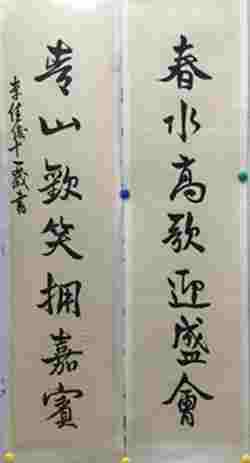 春水高歌迎盛會
青山歡笑擁嘉賓
李佳俊十一歲書